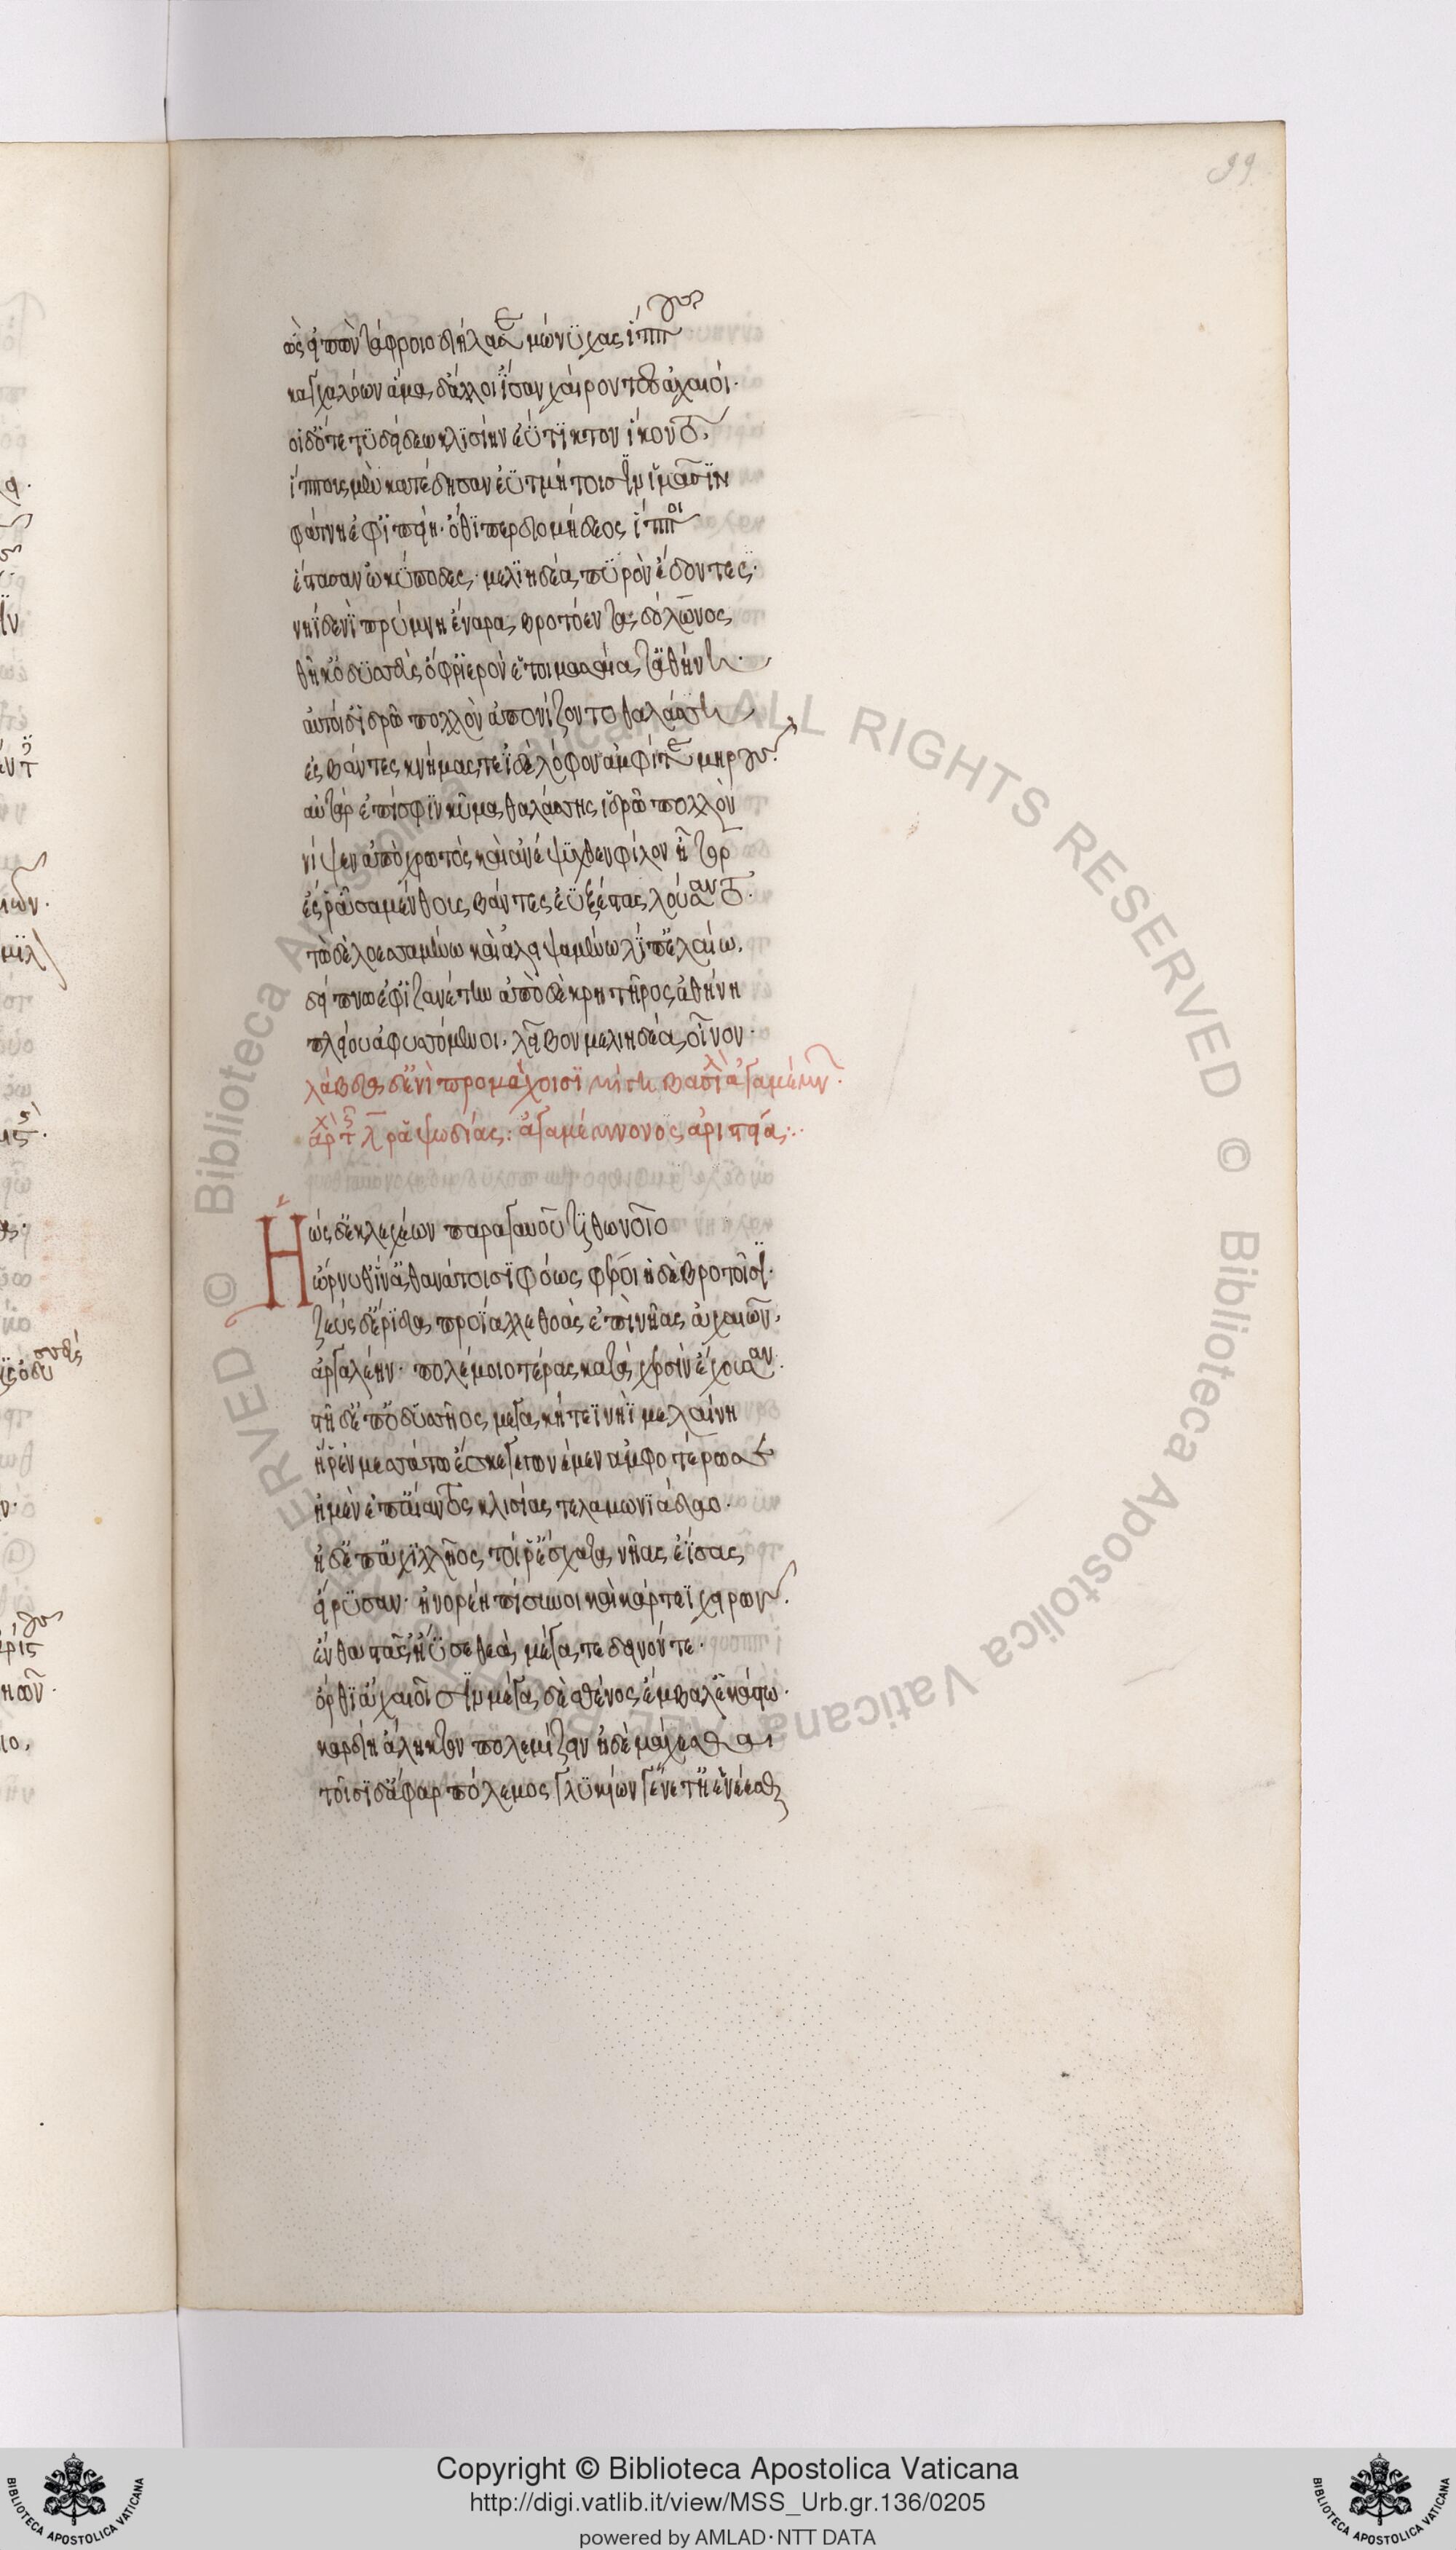 ὡς εἰπὼν τάφροιο διήλασε μώνϋχας ἵππους
καγχαλόων ἅμα δ' ἄλλοι ἴσαν χαίροντες ἀχαιοί·
οἱ δ' ὅτε τϋδείδεω κλϊσίην ἐΰτϊκτον ἵκοντο,
ἵππους μὲν κατέδησαν ἐϋτμήτοισϊν ἱμᾶσϊν
φάτνη ἐφ' ϊππείη· ὅθϊ περ διομήδεος ἵπποι
ἕστασαν ὠκϋποδες· μελϊηδέα πϋρὸν ἔδοντες·
νηῒ δ' ἐνῒ πρύμνη ἔναρα βροτόεντα δόλωνος
θῆκ' ὀδϋσσεὺς ὄφρ' ϊερὸν ἑτοιμασσαίατ' ἀθήνη·
αὐτοὶ δ' ϊδρῶ πολλὸν ἀπονίζοντο θαλάσση
ἐσβάντες κνήμας τε ϊδὲ λόφον ἀμφίτε μηρούς·
αὐτὰρ ἐπεί σφϊν κῦμα θαλάσσης ἱδρῶ πολλὸν
νίψεν ἀπὸ χρωτὸς καὶ ἀνέψϋχθεν φίλον ἦτορ
ἐς ῥ' ἀσαμίνθους βάντες ἐϋξέστας λούσαντο·
τὼ δὲ λοεσσαμένω καὶ ἀλειψαμένω λίπ' ἐλαίω.
δείπνω ἐφϊζανέτην ἀπὸ δὲ κρητῆρος ἀθήνη
πλείου ἀφυσσόμενοι. λεῖβον μελιηδέα οἶνον·
λάβδα δ' ἐνὶ προμάχοισϊ βασϊλ ἀγαμέμνων·
ἀρχ τς λ ῥαψωδίας: ἀγαμέμνονος ἀριστεία:·
Ἠὼς δ' ἐκ λεχέων παρ' ἀγαυοῦ τϊθωνοῖο
ὤρνυθ' ἵν' ἀθανάτοισϊ φόως φέροι ἠδὲ βροτοῖσϊ·
ζεὺς δ' ἔρϊδα προΐαλλε θοὰς ἐπὶ νῆας ἀχαιῶν,
ἀργαλέην· πολέμοιο τέρας μετὰ χερσὶν ἔχουσαν·
στῆ δ' ἐπ' ὀδϋσσῆος μεγακήτεϊ νηῒ μελαίνη
ἥ ῥ' ἐν μεσσάτω ἔσκε γεγωνέμεν ἀμφοτέρωσε
ἠμὲν ἐπ' αἴαντος κλισίας τελαμωνϊάδαο·
ἠδ' ἐπ' ἀχϊλλῆος, τοί ῥ' ἔσχατα νῆας ἐΐσας
εἴρϋσαν· ἠνορέη πίσυνοι καὶ κάρτεϊ χειρῶν·
ἔνθα στᾶσ' ἤϋσε θεὰ μέγα τε δεινόν τε·
ὄρθϊ' ἀχαιοῖσϊν μέγα δὲ σθένος ἔμβαλ' ἑκάστω·
καρδίη ἄληκτον πολεμίζειν ἠδὲ μάχεσθαι
τοῖσϊ δ' ἄφαρ πόλεμος γλϋκίων γένετ' ἠὲ νέεσθαι
99
Copyright © Biblioteca Apostolica Vaticana
http://digi.vatlib.it/view/MSS_Urb.gr.136/0205
powered by AMLAD·NTT DATA